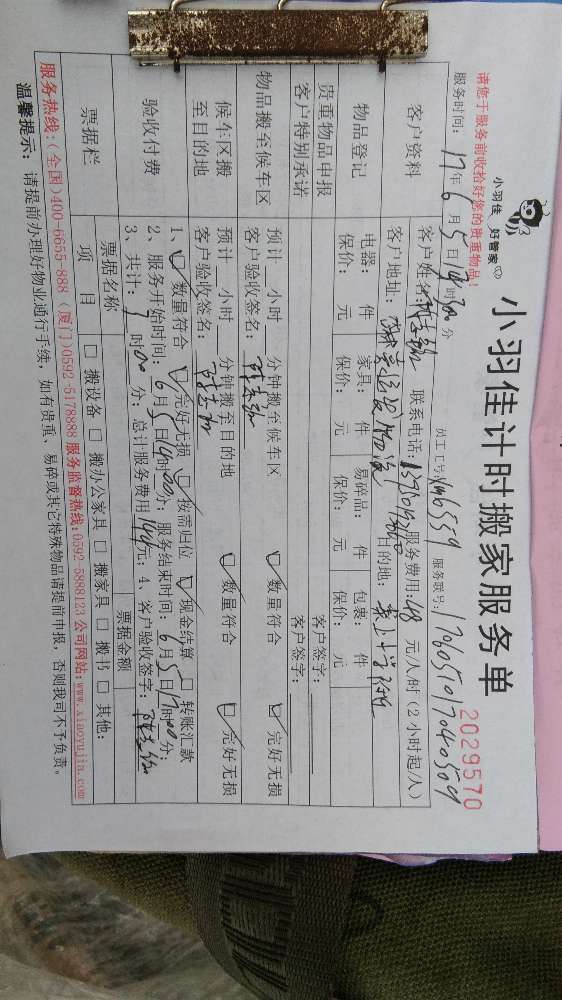 小羽佳 好管家
小羽佳计时搬家服务单
2029570
请您于服务前收拾好您的贵重物品!
服务时间: 17年6月5日 时 分 员工工号 服务联号:
客户资料 客户姓名: 联系电话: 服务费用:48 元/人/时 (2小时起/人)
客户地址: 目的地:
物品登记 电器: 件 家具: 件 易碎品: 件 包裹: 件
保价: 元 保价: 元 保价: 元 保价: 元
贵重物品申报 客户签字:
客户特别承诺 客户签字:
物品搬至候车区 预计 小时 分钟搬至候车区 数量符合 完好无损
客户验收签名:
候车区搬至目的地 预计 小时 分钟搬至目的地 数量符合 完好无损
客户验收签名:
验收付费 1、数量符合 完好无损 按需归位 现金结算 转账汇款
2、服务开始时间: 6月5日14时00分; 服务结束时间: 6月5日17时00分;
3、共计: 3时00分; 总计服务费用:144元; 4、客户验收签字:
票据栏 票据名称 票据金额
项目 搬设备 搬办公家具 搬家具 搬书 其他:
服务热线: (全国)400-6655-888 (厦门)0592-5178888 服务监督热线:0592-5888123 公司网站:www.xiaoyujin.com
温馨提示: 请提前办理好物业通行手续, 如有贵重、易碎或其它特殊物品请提前申报, 否则我司不予负责。